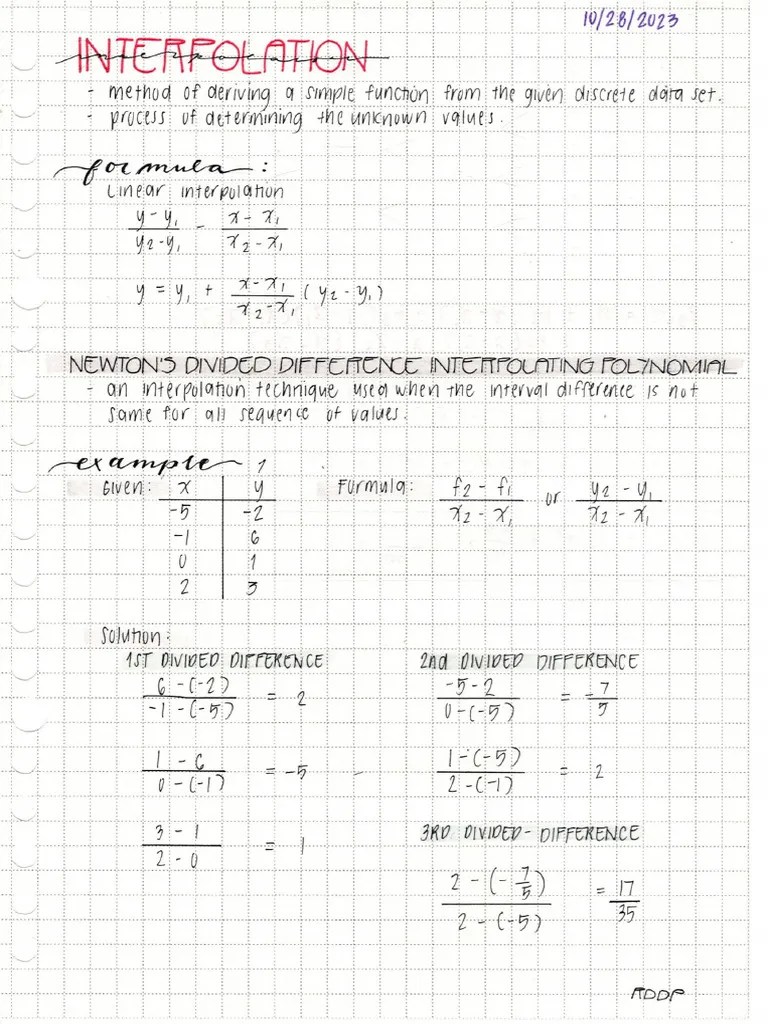 10/28/2023
INTERPOLATION
interpolation
- method of deriving a simple function from the given discrete data set.
- process of determining the unknown values.
formula :
Linear interpolation
(y - y₁)/(y₂ - y₁) - (x - x₁)/(x₂ - x₁)
y = y₁ + (x - x₁)/(x₂ - x₁) (y₂ - y₁)
NEWTON'S DIVIDED DIFFERENCE INTERPOLATING POLYNOMIAL
- an interpolation technique used when the interval difference is not
same for all sequence of values.
example 1
Given: x y Formula: (f₂ - f₁)/(x₂ - x₁) or (y₂ - y₁)/(x₂ - x₁)
-5 -2
-1 6
0 1
2 3
Solution:
1ST DIVIDED DIFFERENCE
(6 - (-2))/(-1 - (-5)) = 2
(1 - 6)/(0 - (-1)) = -5
(3 - 1)/(2 - 0) = 1
2nd DIVIDED DIFFERENCE
(-5 - 2)/(0 - (-5)) = -7/5
(1 - (-5))/(2 - (-1)) = 2
3RD DIVIDED - DIFFERENCE
(2 - (-7/5))/(2 - (-5)) = 17/35
RDDP